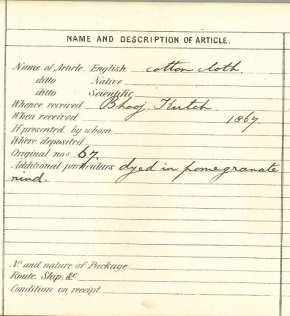 NAME AND DESCRIPTION OF ARTICLE.
Name of Article, English cotton cloth.
ditto Native
ditto Scientific
Whence received Bhooj, Kutch.
When received 1867.
If presented, by whom
Where deposited
Original no. 67.
Additional particulars dyed in pomegranate
rind.
No. and nature of Package
Route, Ship, &c.
Condition on receipt